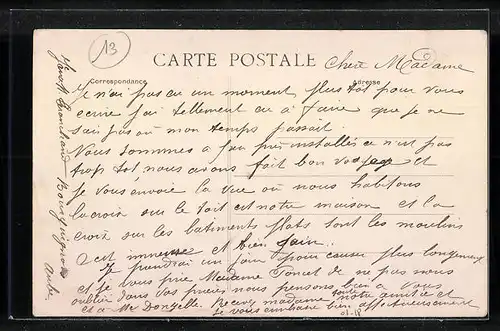 13
CARTE POSTALE
Correspondance
Adresse
Chere Madame
Je n'ai pas eu un moment plus tot pour vous
ecrire j'ai tellement eu à faire que je ne
sai pas où mon temps passait
Nous sommes a peu près installés ce n'est pas
trop tot nous avons fait bon voyage et
je vous envoie la vue où nous habitons
la croix sur le toit est notre maison et la
croix sur les batiments plats sont les moulins
c'est immense et bien
Je prendrai un jour pour causer plus longuement
et je vous prie Madame de ne pas nous
oublier dans vos prieres nous pensons bien a vous
et a Mr Donzelle. Recevez madame toute notre amitié et
je vous embrasse bien affectueusement
Bourguignons
Aube